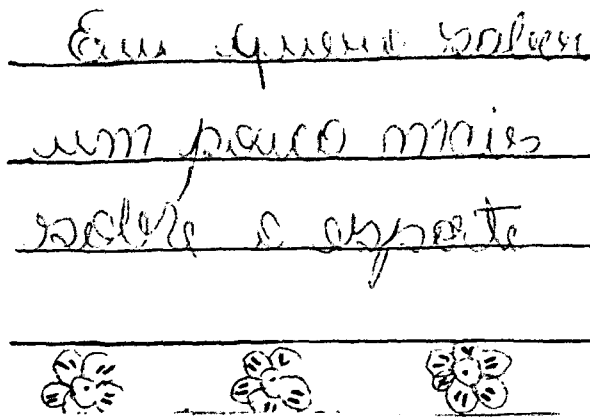 Eu quero saber
um pouco mais
sobre o esporte